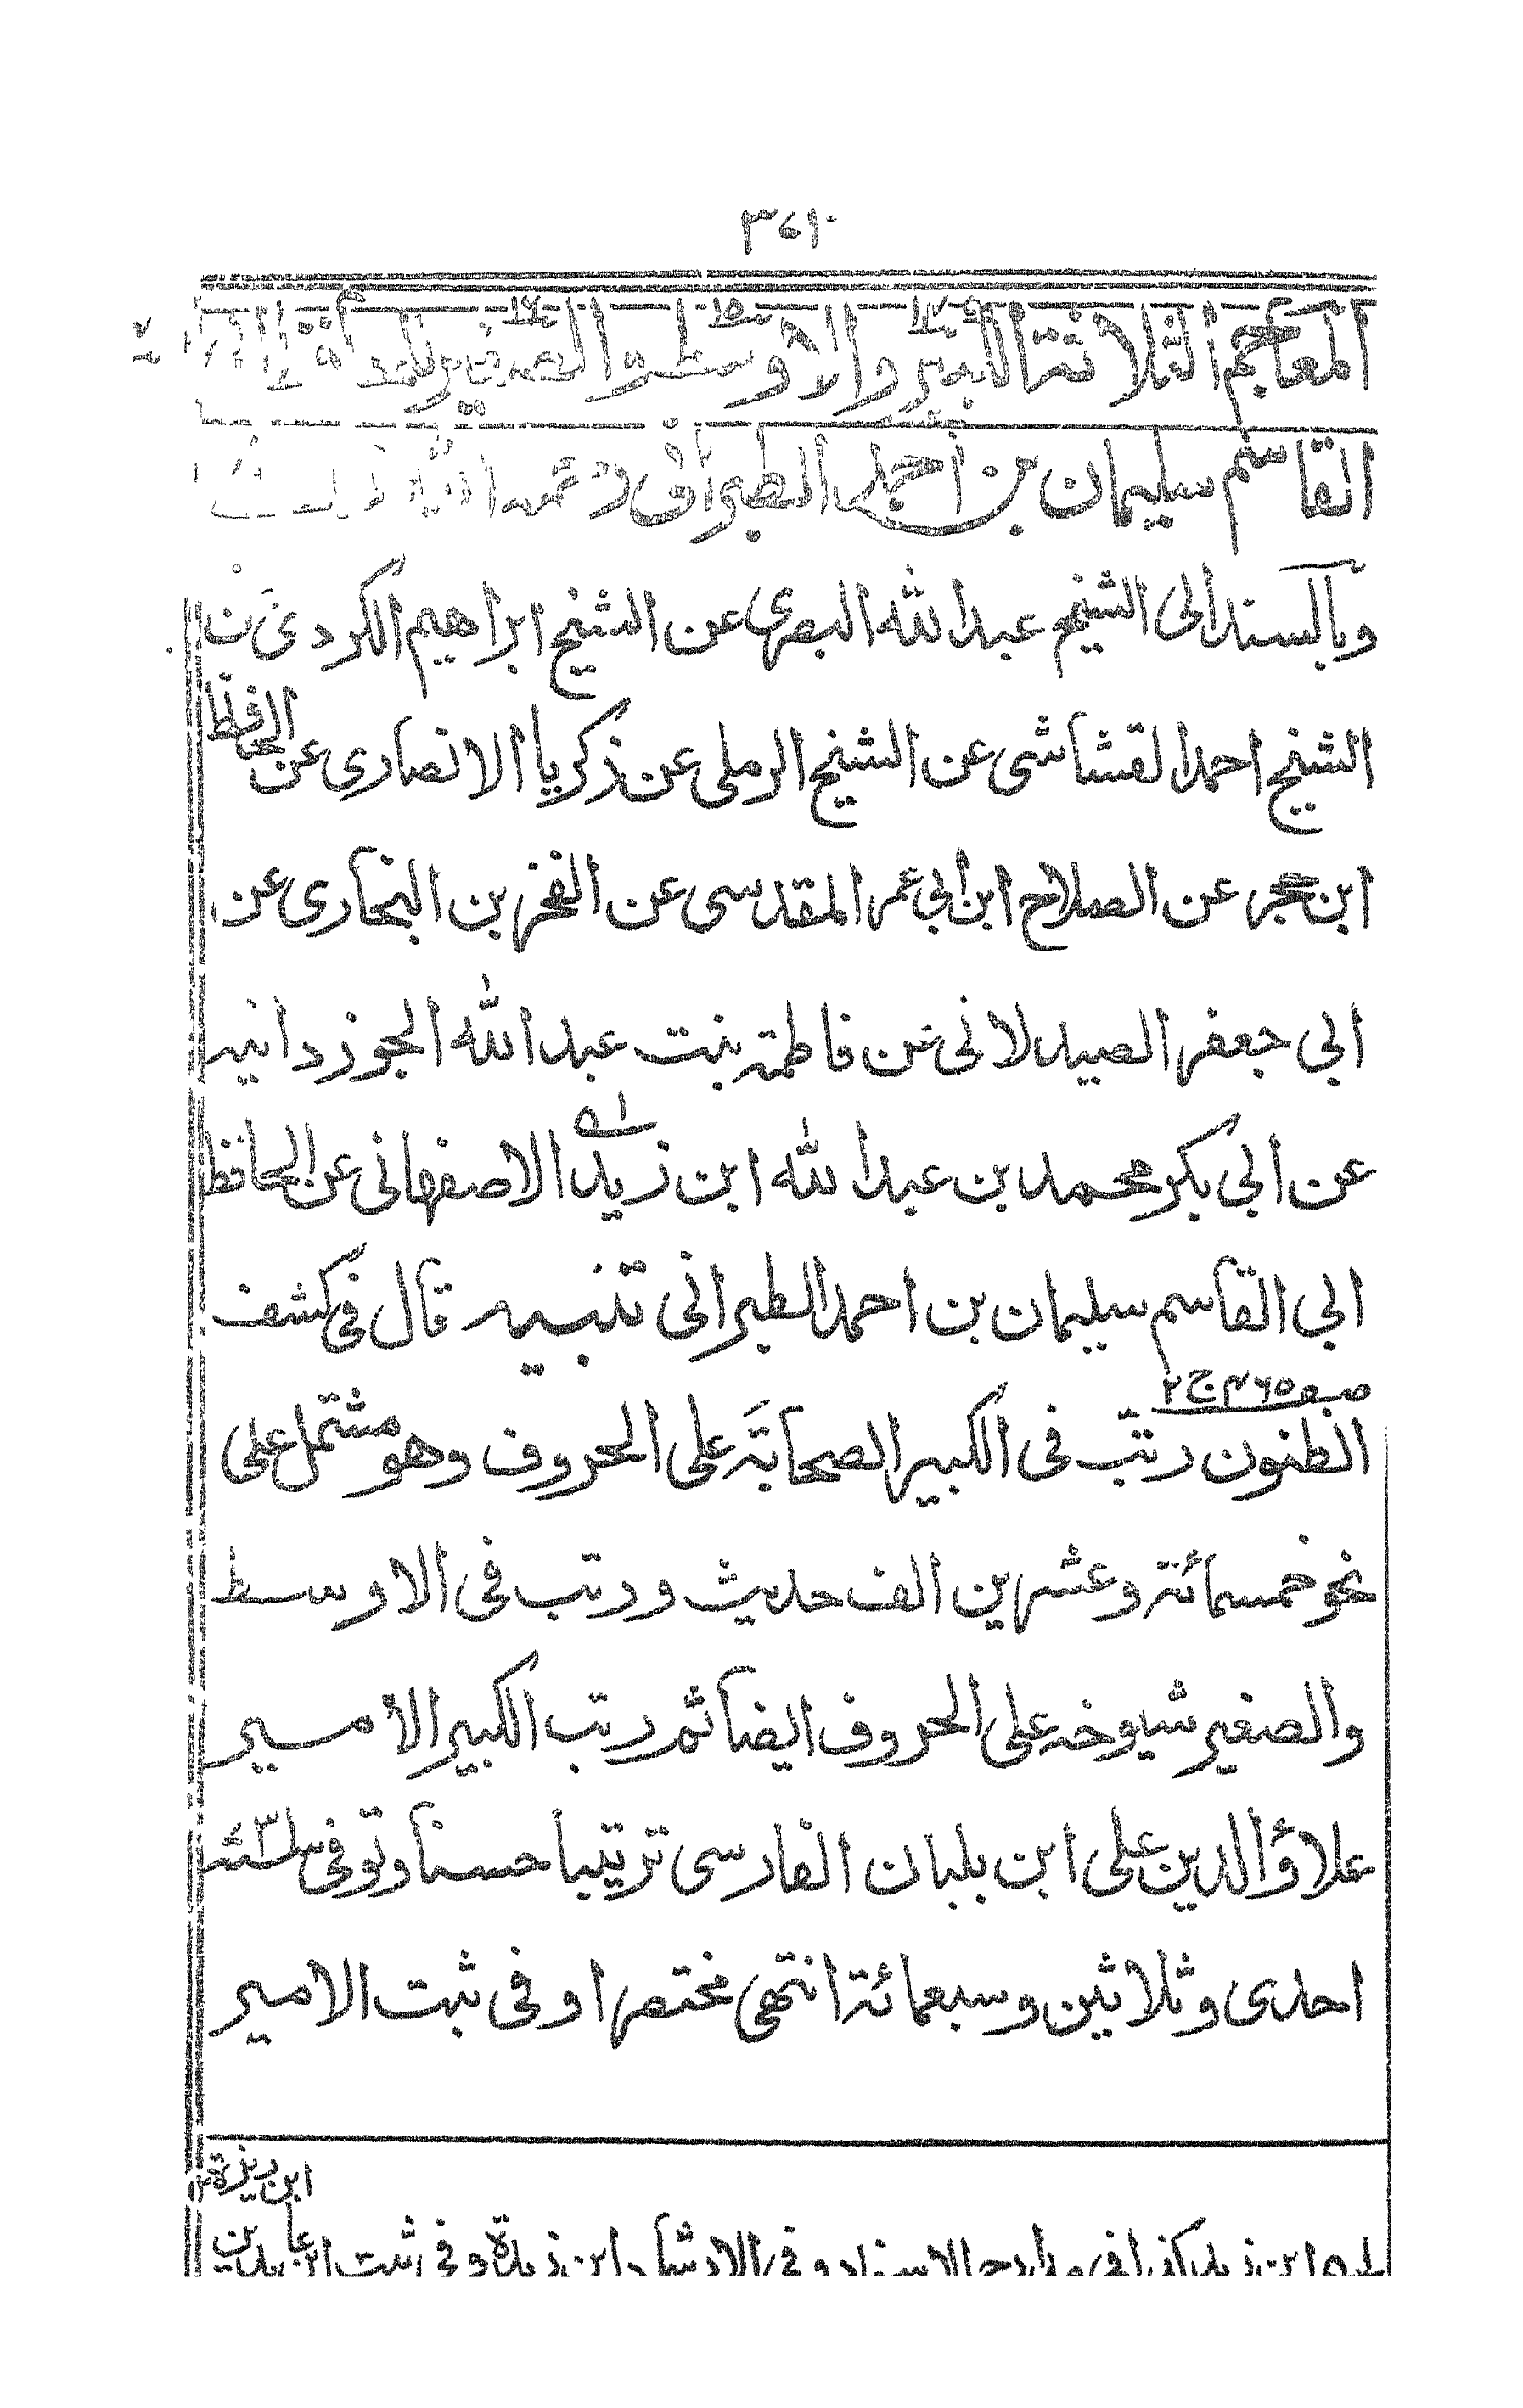 ٣٦١
المعاجم الثلاثة الكبير والاوسط والصغير للحافظ
القاسم سليمان بن احمد الطبراني رحمه الله
وبالسند الى الشيخ عبد الله البصرى عن الشيخ ابراهيم الكردى عن
الشيخ احمد القشاشى عن الشيخ الرملى عن ذكريا الانصارى عن الحافظ
ابن حجر عن الصلاح ابن ابي عمر المقدسى عن الفخر بن البخارى عن
ابي جعفر الصيدلانى عن فاطمة بنت عبد الله الجوزدانيه
عن ابي بكر محمد بن عبد الله ابن زيد الاصفهانى عن الحافظ
ابي القاسم سليمان بن احمد الطبرانى تنبيه قال فى كشف
صـ ٤٦٥ ج ٢
الظنون رتب فى الكبير الصحابة على الحروف وهو مشتمل على
نحو خمسمائة وعشرين الف حديث ورتب فى الاوسط
والصغير شيوخه على الحروف ايضا ثم رتب الكبير الامير
علاؤ الدين على ابن بلبان الفارسى ترتيبا حسنا وتوفى سنة
احدى وثلاثين وسبعمائة انتهى مختصرا وفى ثبت الامير
ابن ريزة